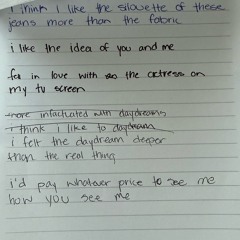 i think I like the silouette of these
jeans more than the fabric
i like the idea of you and me
fell in love with the actress on
my tv screen
more infactuated with daydreams
i think i like to daydream
i felt the daydream deeper
than the real thing
i'd pay whatever price to see me
how you see me